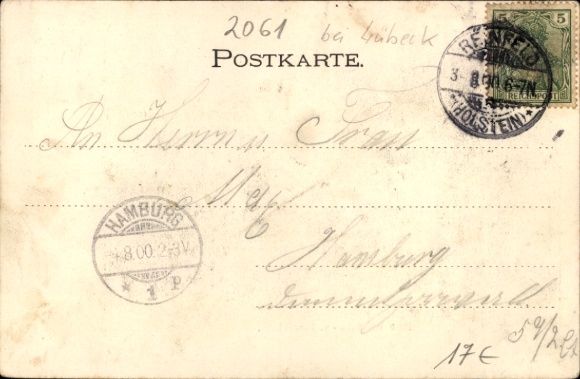 2061 bei Lübeck
POSTKARTE.
5 5
REICHSPOST
REINFELD
8.00.6-7N
(HOLSTEIN)
An Herrn u Frau
HAMBURG
8.00.2-3V
* 1 P
Hamburg
17€